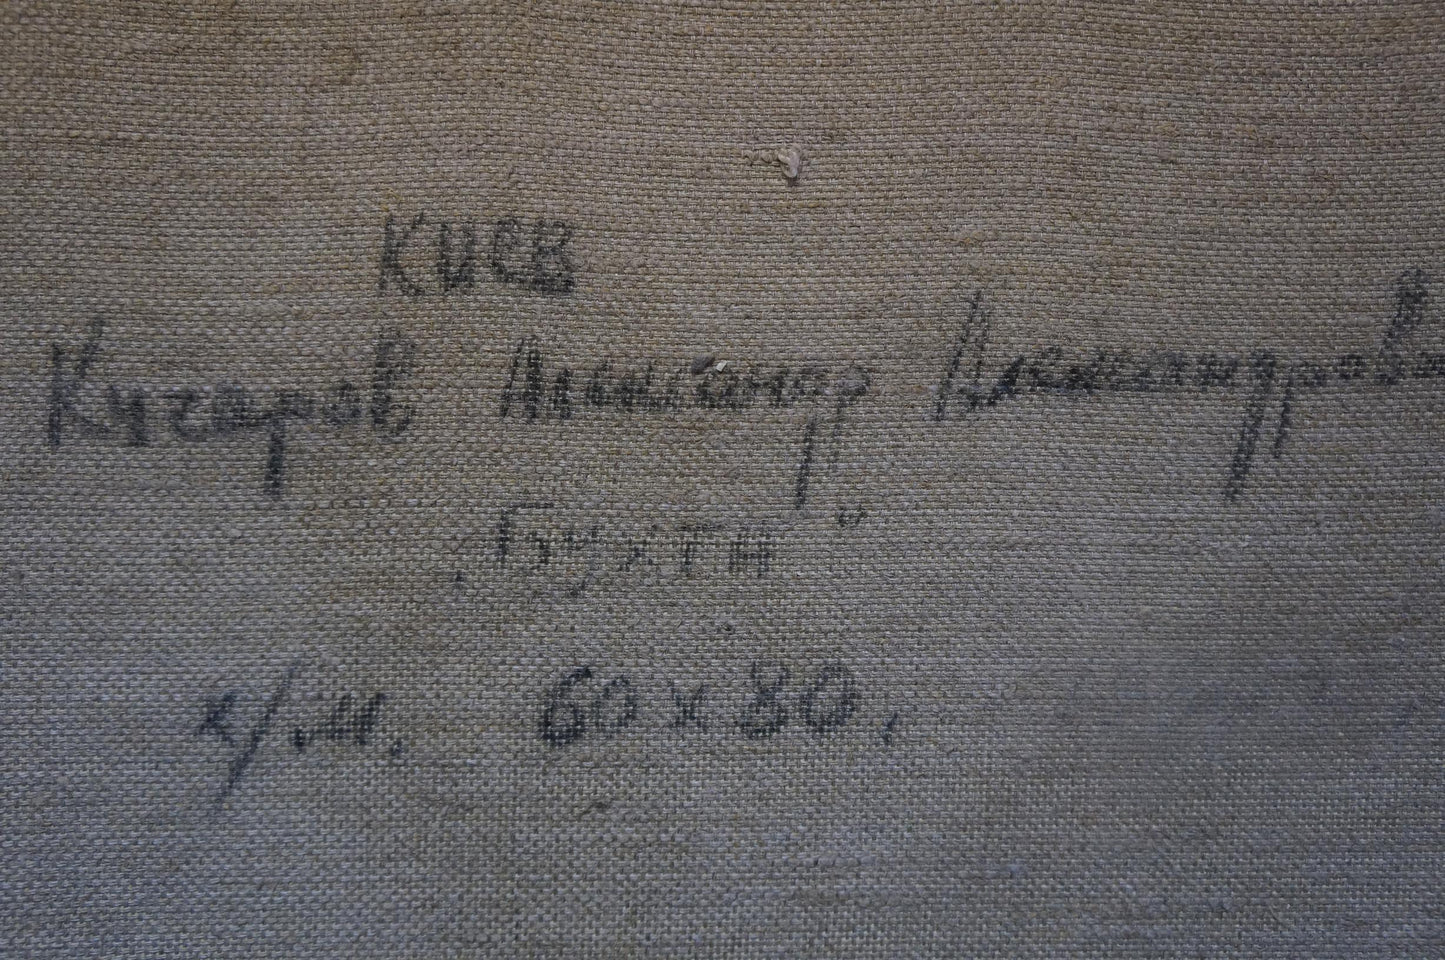 Киев
Кучеров Александр Александрови
„Бухта"
х/м. 60 x 80.